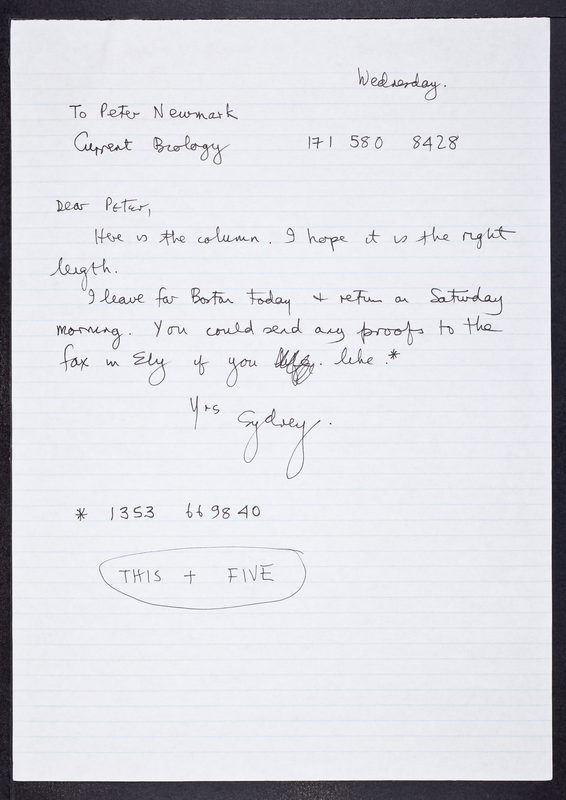 Wednesday.
To Peter Newmark
Current Biology 171 580 8428
Dear Peter,
Here is the column. I hope it is the right
length.
I leave for Boston today + return on Saturday
morning. You could send any proofs to the
fax in Ely if you like.*
Yrs Sydney.
* 1353 669840
THIS + FIVE